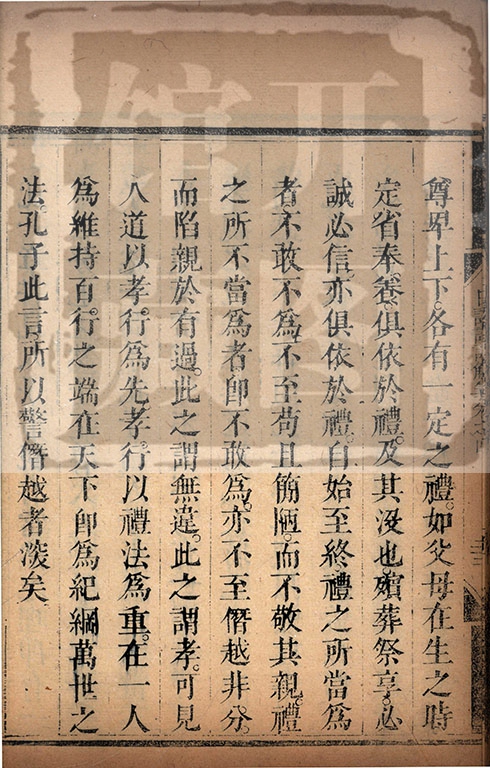 尊卑上下。各有一定之禮。如父母在生之時
定省奉養。俱依於禮。及其沒也。殯葬祭享。必
誠必信。亦俱依於禮。自始至終。禮之所當爲
者。不敢不爲。不至苟且簡陋。而不敬其親。禮
之所不當爲者。卽不敢爲。亦不至僭越非分。
而陷親於有過。此之謂無違。此之謂孝。可見
人道以孝行爲先。孝行以禮法爲重。在一人
爲維持百行之端。在天下卽爲紀綱萬世之
法。孔子此言。所以警僭越者深矣